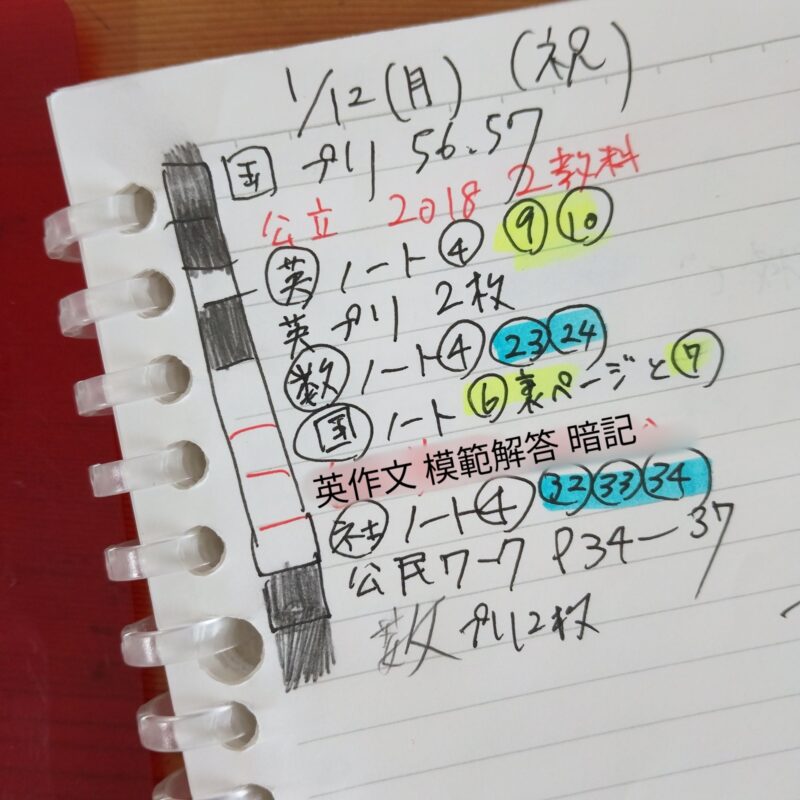 1/12(月) (祝)
国 プリ 56.57
公立 2018 2教科
英 ノート④ ⑨⑩
英 プリ 2枚
数 ノート④ ㉓㉔
国 ノート ⑥裏ページと⑦
英作文 模範解答 暗記
社 ノート④ ㉜㉝㉞
公民ワーク P34ー37
数 プリ2枚